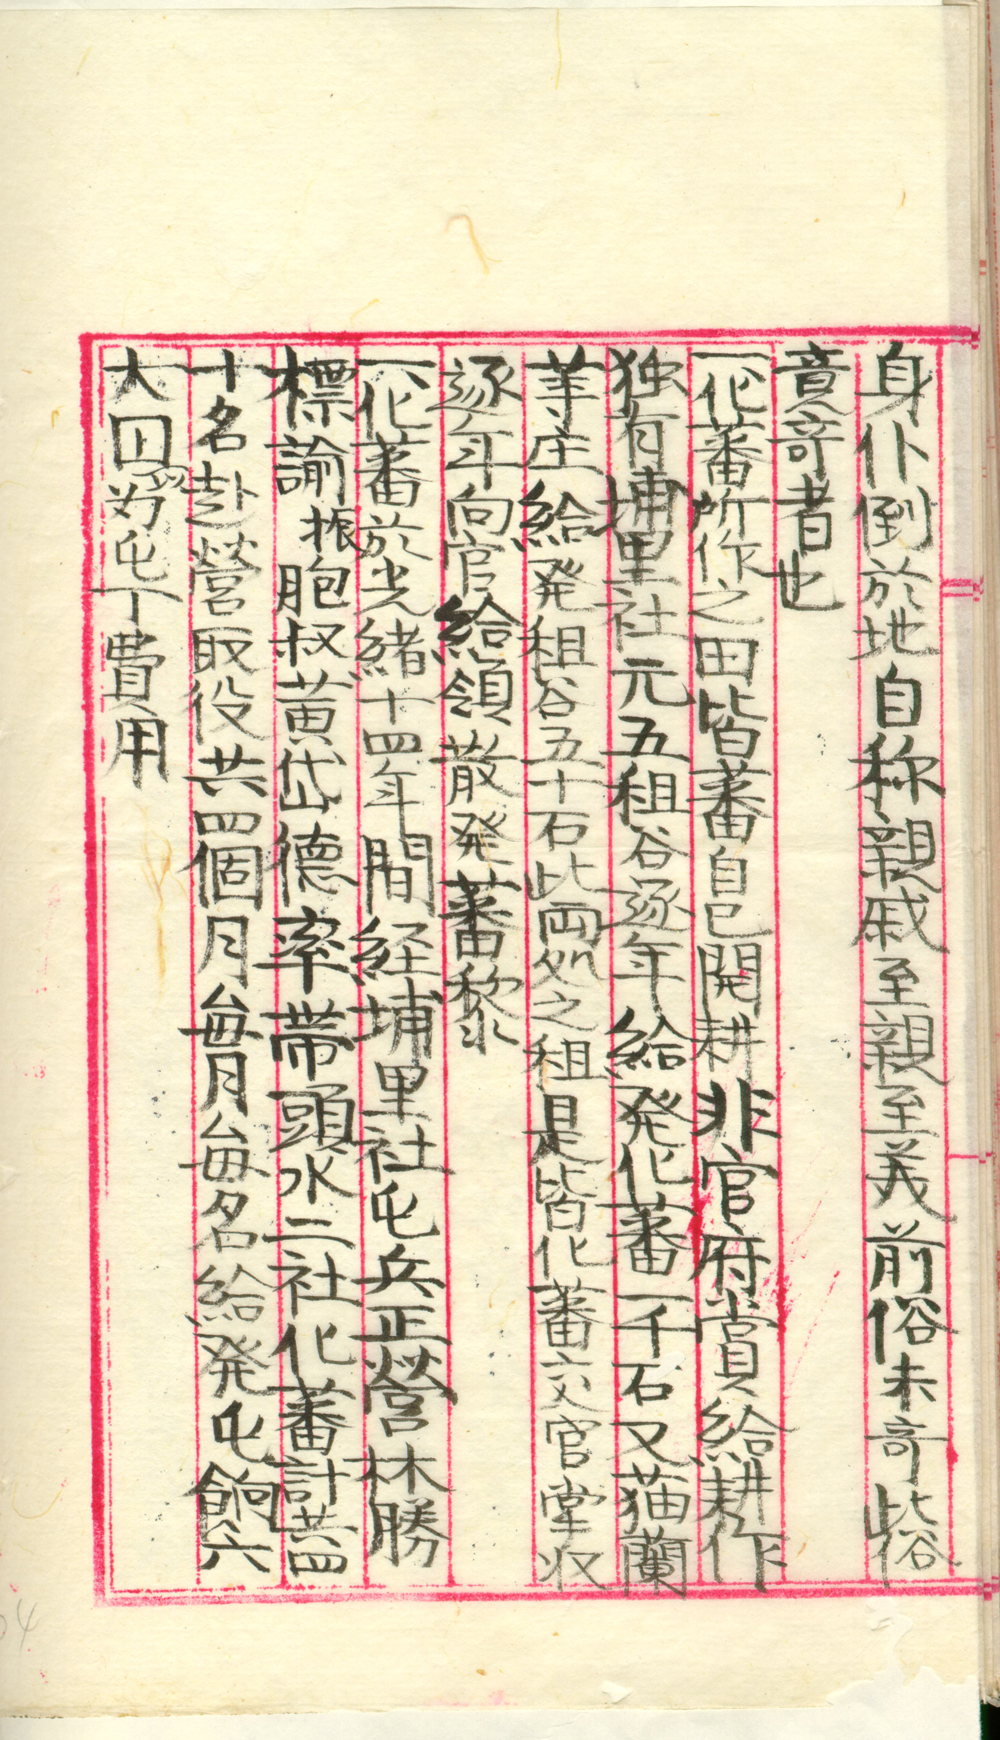 身仆倒於地自称親戚至親至義前俗未奇此俗
竟奇者也
一化蕃所作之田皆蕃自己開耕非官府賞給耕作
独有埔里社元五租谷逐年給発化蕃一千石又猫蘭
羊庄給発租谷五十石此両処之租是皆化蕃交官掌収
逐年向官給領散発蕃黎
一化蕃於光緒十四年間経埔里社屯兵正營林勝
標諭振胞叔黄岱德率帯頭水二社化蕃計共四
十名赴營取役共四個月每月每名給発屯餉六
大囚为屯丁費用